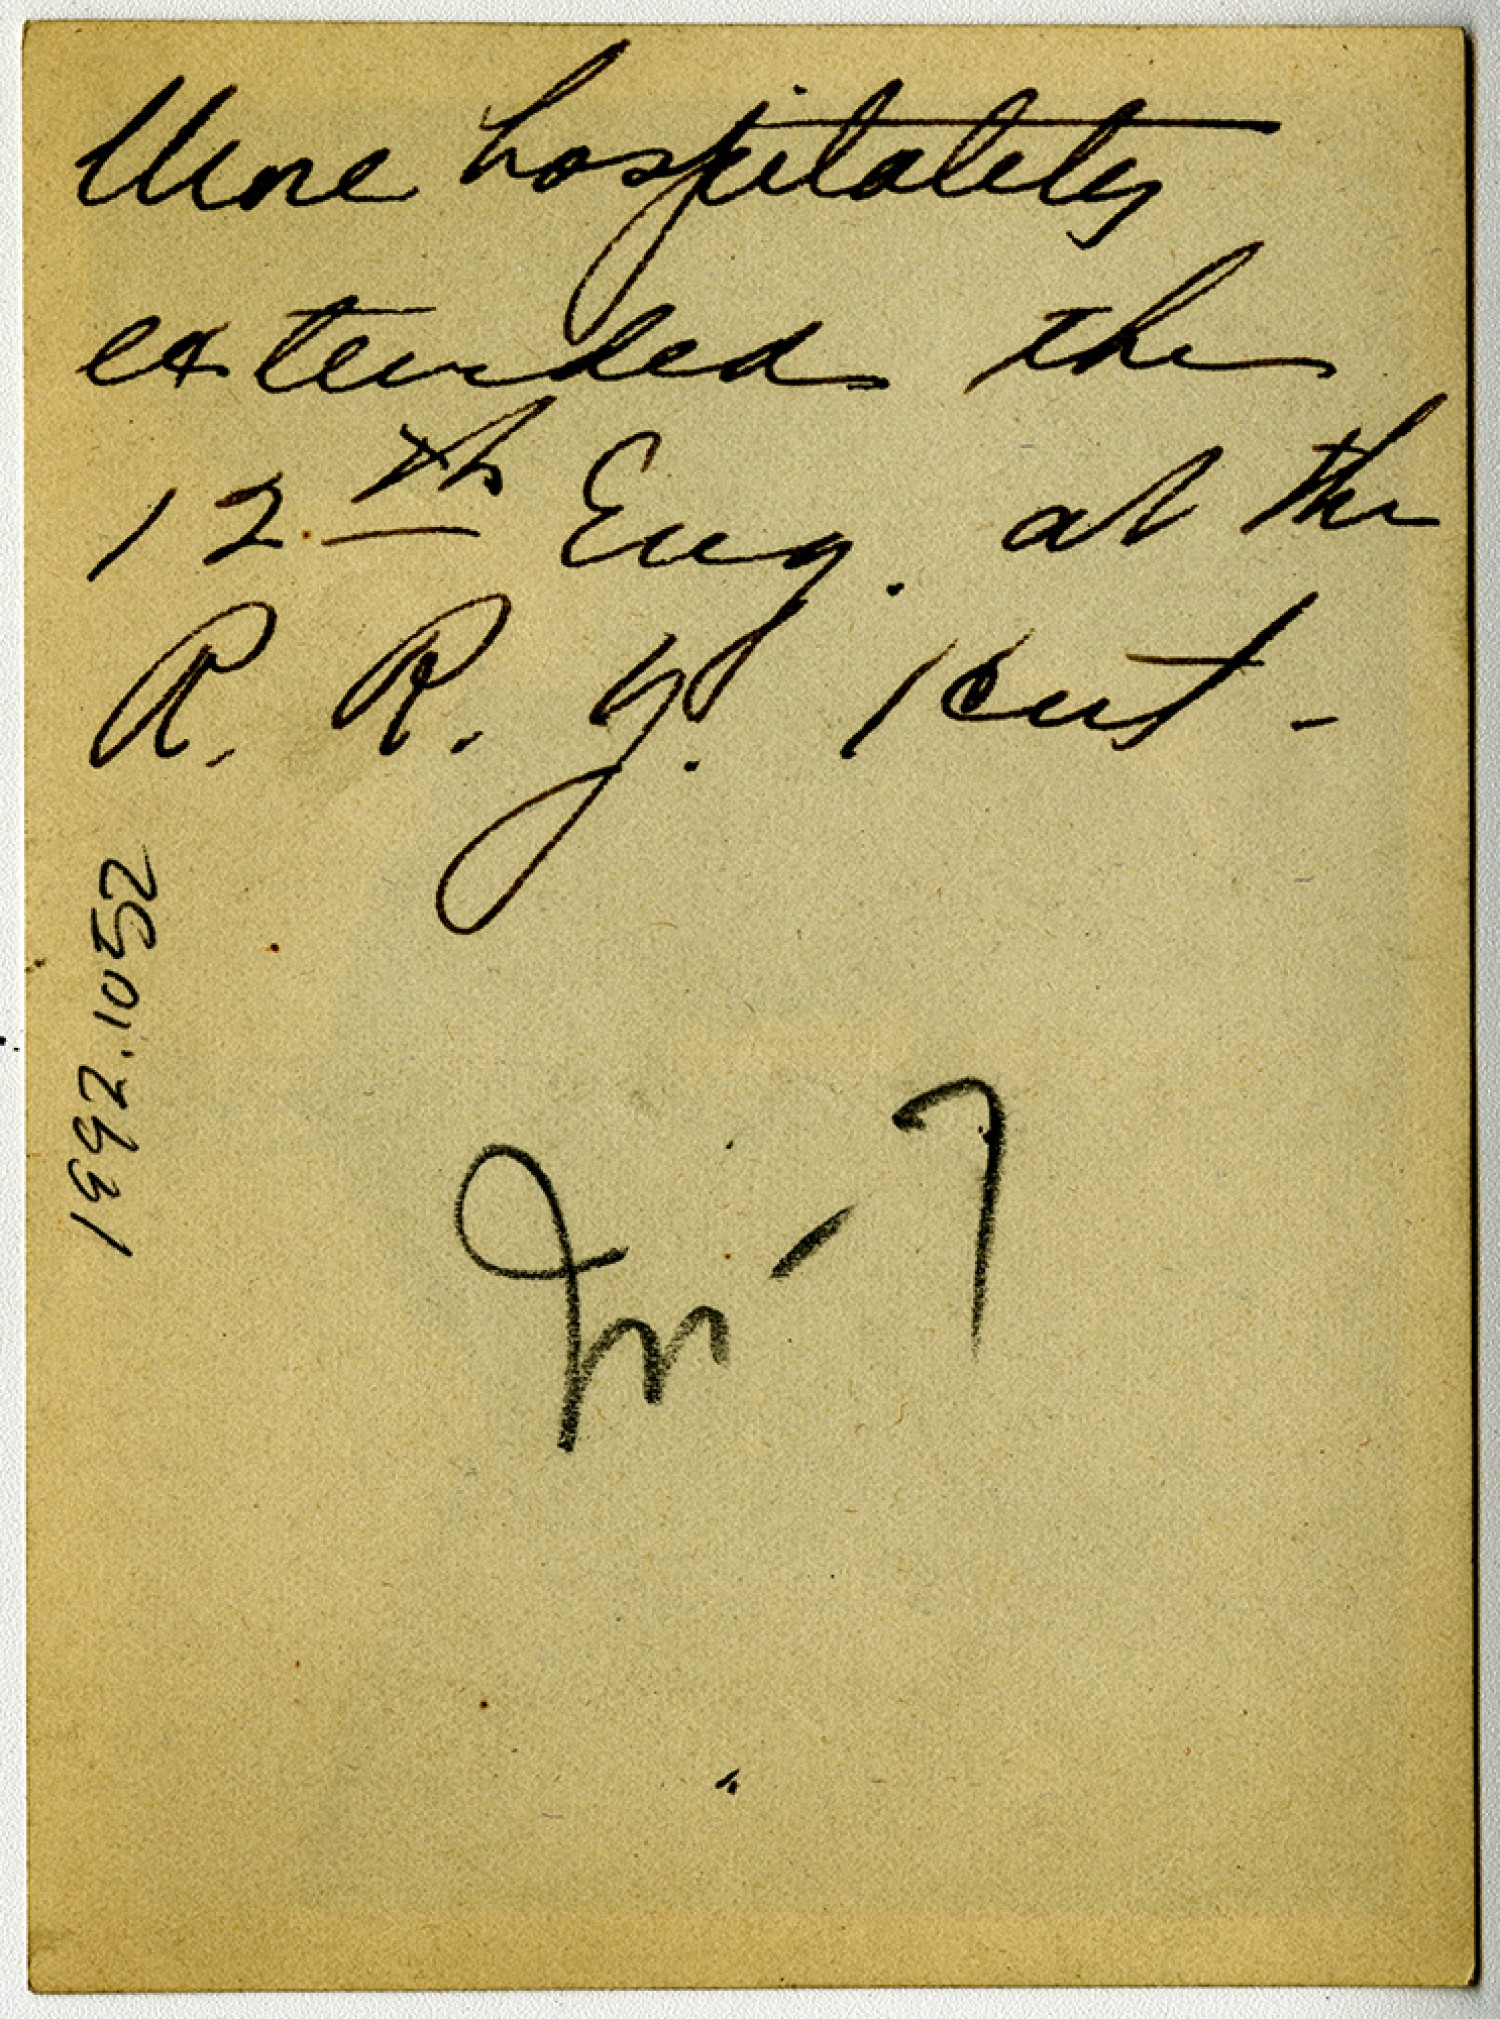 More hospitality
extended the
12.th Eng. at the
R. R. Y. Hut -
1992.1052
M - 7